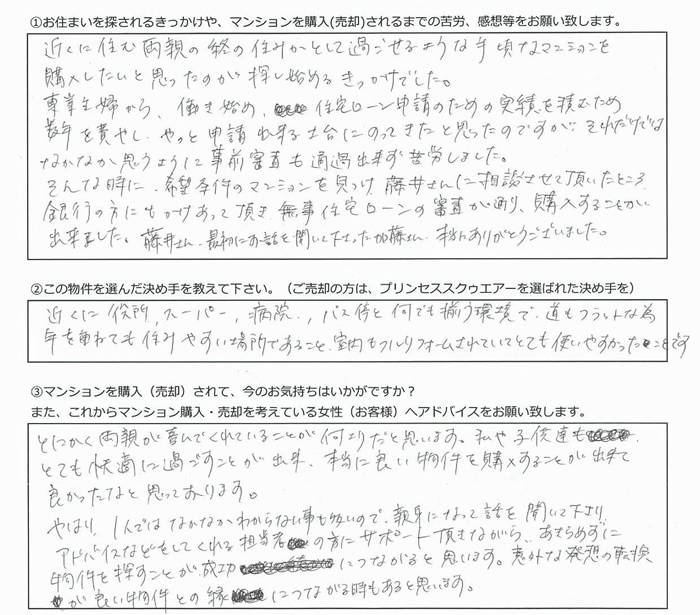 ①お住まいを探されるきっかけや、マンションを購入(売却)されるまでの苦労、感想等をお願い致します。
近くに住む両親の終の住みかとして過ごせるような手頃なマンションを
購入したいと思ったのが探し始めるきっかけでした。
専業主婦から、働き始め、住宅ローン申請のための実績を積むため
数年を費やし、やっと申請出来る土台にのってきたと思ったのですが、それだけでは
なかなか思うように事前審査も通過出来ず苦労しました。
そんな時に、希望条件のマンションを見つけ、藤井さんに相談させて頂いたところ、
銀行の方にもかけあって頂き、無事住宅ローンの審査が通り、購入することが
出来ました。藤井さん、最初にお話を聞いて下さった加藤さん、本当にありがとうございました。
②この物件を選んだ決め手を教えて下さい。（ご売却の方は、プリンセススクゥエアーを選ばれた決め手を）
近くに役所、スーパー、病院、バス停と何でも揃う環境で、道もフラットな為
年を重ねても住みやすい場所であること、室内もフルリフォームされていてとても使いやすかったことです
③マンションを購入（売却）されて、今のお気持ちはいかがですか？
また、これからマンション購入・売却を考えている女性（お客様）へアドバイスをお願い致します。
とにかく両親が喜んでくれていることが何よりだと思います。私や子供達も
とても快適に過ごすことが出来、本当に良い物件を購入することが出来て
良かったなと思っております。
やはり、1人ではなかなかわからない事も多いので、親身になって話を聞いて下さり
アドバイスなどをしてくれる担当者の方にサポート頂きながら、あきらめずに
物件を探すことが成功につながると思います。意外な発想の転換
が良い物件との縁につながる時もあると思います。